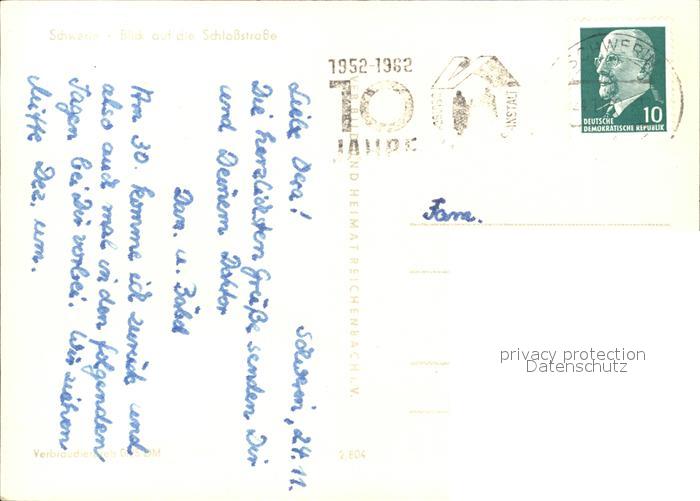 Schwerin · Blick auf die Schloßstraße
1952-1962
10
JAHRE
SCHWERIN
10
DEUTSCHE
DEMOKRATISCHE REPUBLIK
Fam.
Schwerin, 24.11.
Liebe Dora!
Die herzlichsten Grüße senden Dir
und Deinem Doktor
Dan. u. Bäbel
Am 30. komme ich zurück und
also auch mal in den folgenden
Tagen bei Dir vorbei. Wir ziehen
Mitte Dez. um.
BILD UND HEIMAT REICHENBACH I. V.
Verbraucherpreis DM
2,804
privacy protection
Datenschutz